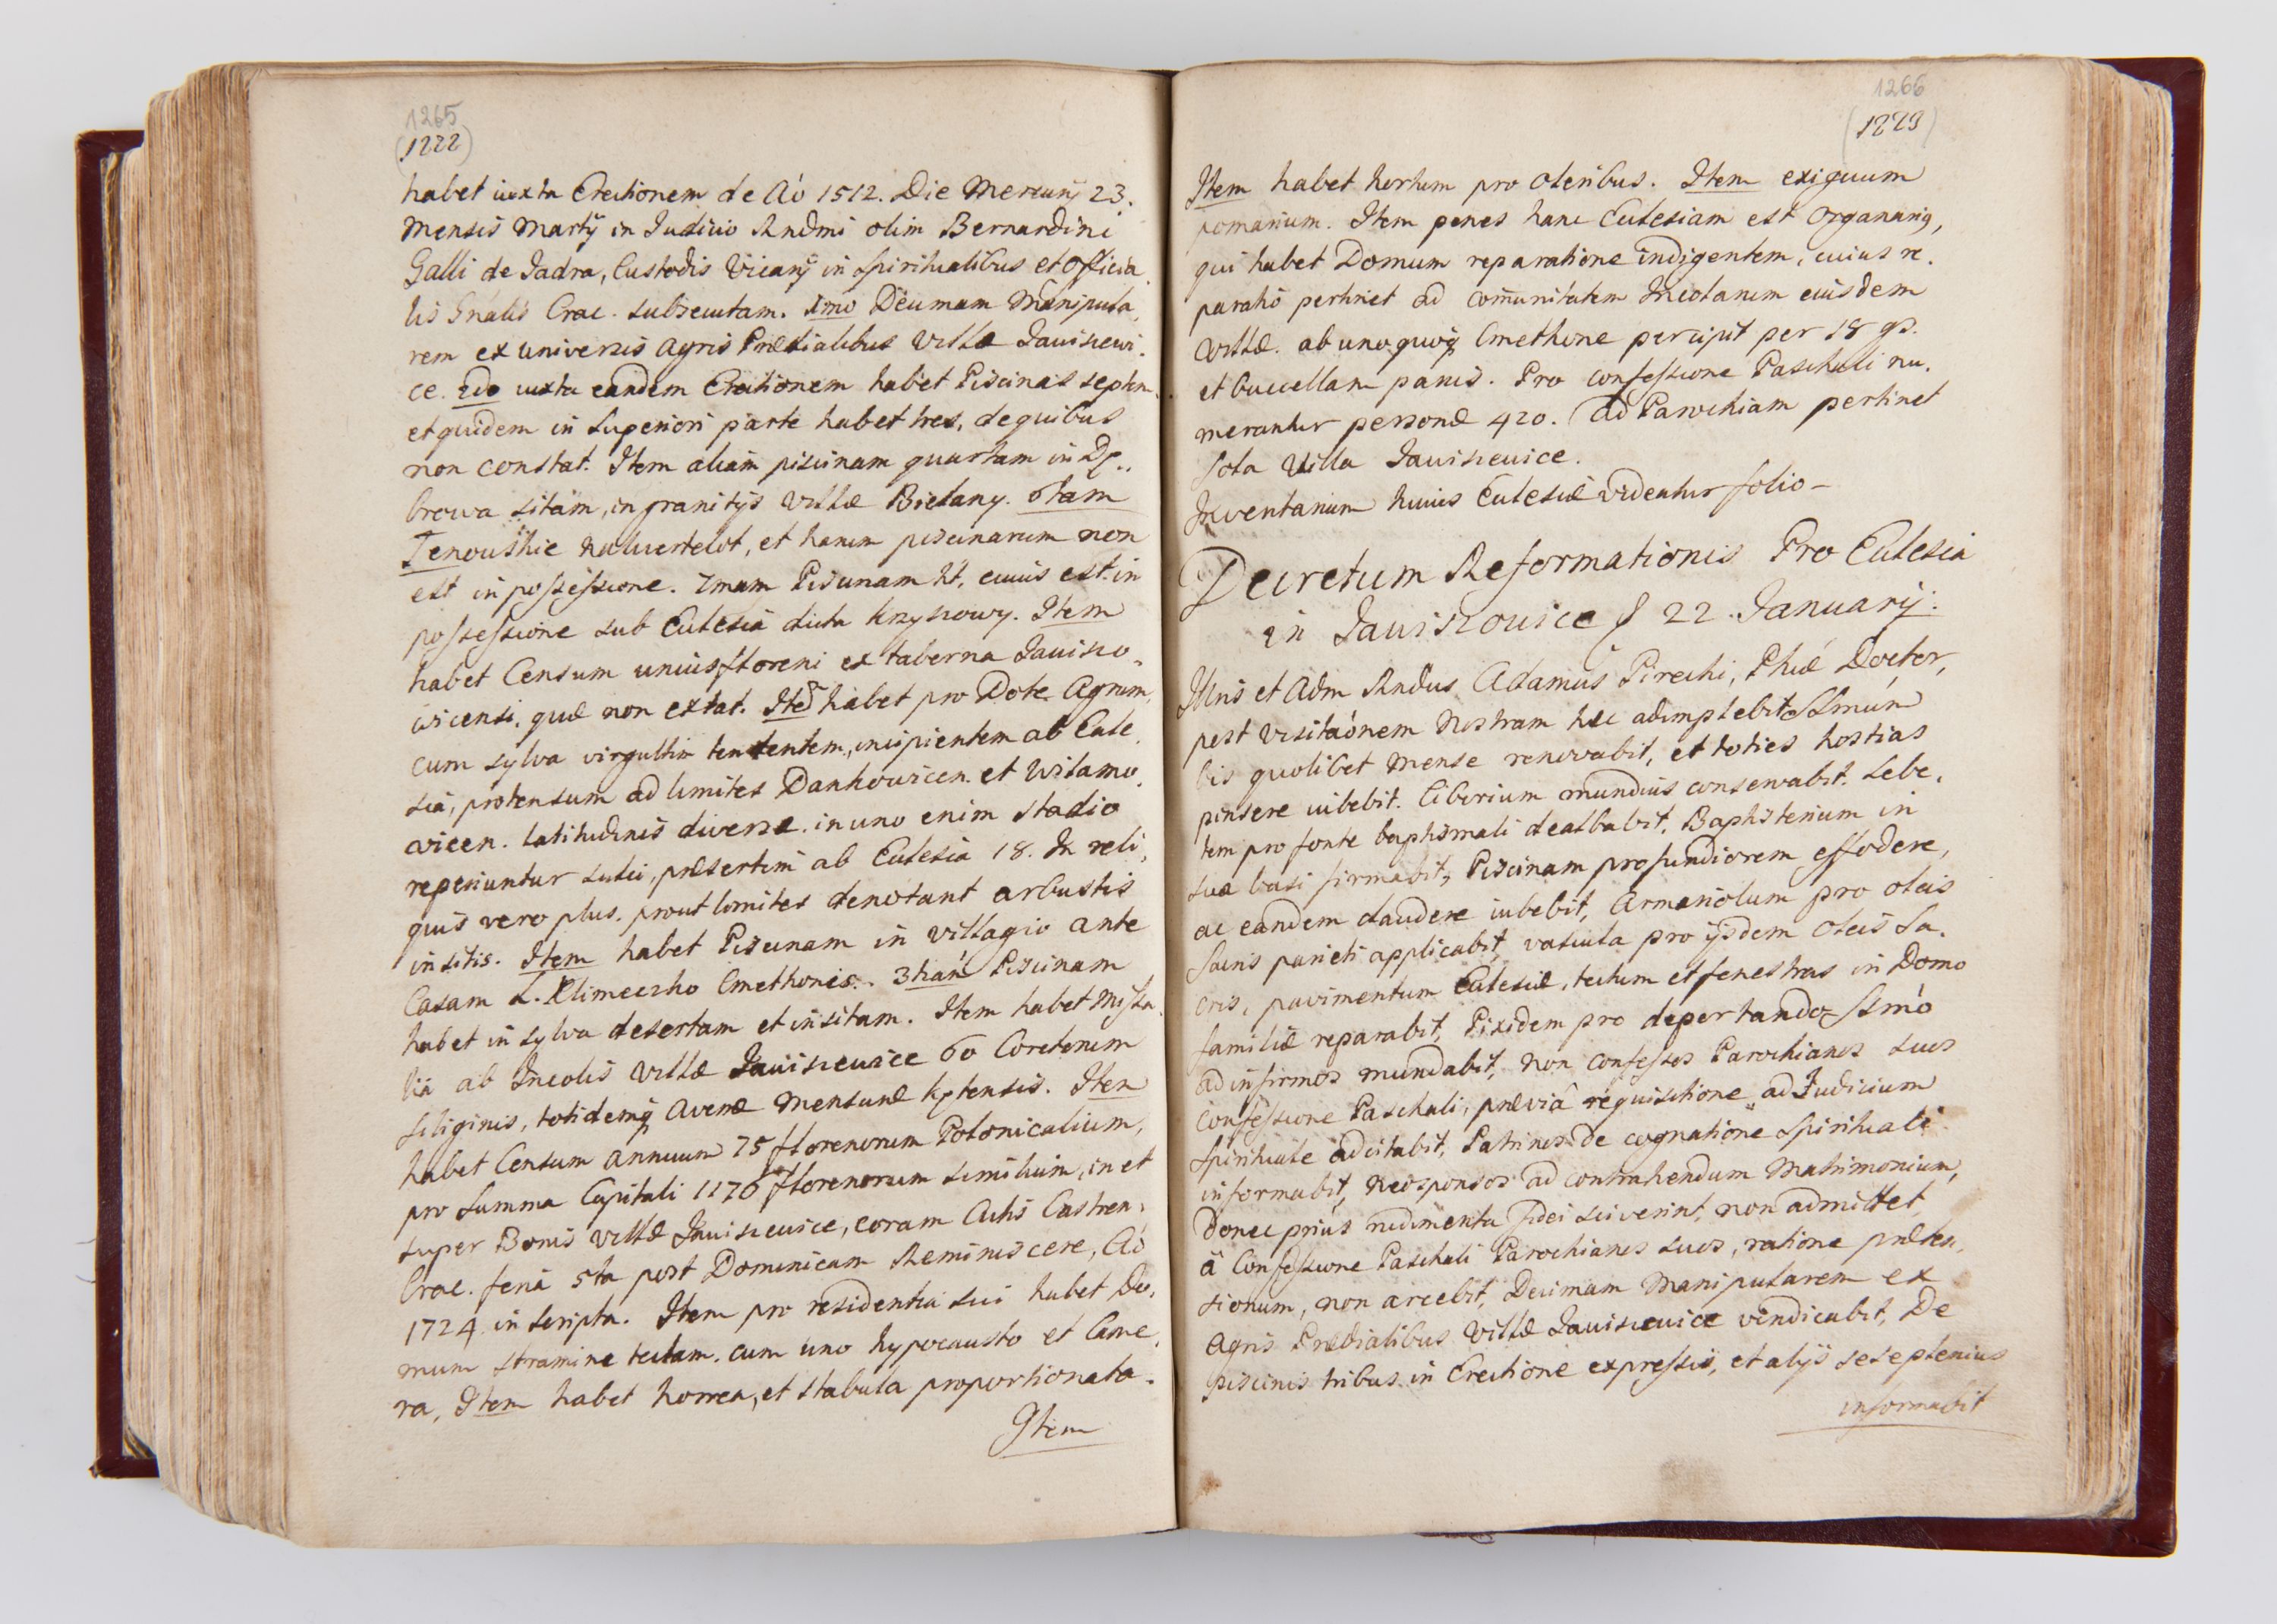 1265
(1222)
habet iuxta Erectionem de Aõ 1512. Die Mercurij 23.
Mensis Martij in Iudicio Rndmi olim Bernardini
Galli de Jadra, Custodis Vicarij in Spiritualibus et Officia
lis Gnalis Crac. subsecutam. 1mo Decimam Manipula,
rem ex universis agris Prædialibus Villæ Jawiszewi,
ce. 2do iuxta eandem Erectionem habet Piscinas septem,
et quidem in superiori parte habet tres, de quibus
non constat. Item aliam piscinam quartam in Dę,,
browa sitam, in granitijs Villæ Bielany. 6tam
et harum piscinarum non
est in possessione. 7mam Piscinam ht, cuius est in
possessione sub Ecclesia dicta krzyszowy. Item
habet Censum unius floreni ex taberna Jawiszo,
vicensi, quæ non extat. Item habet pro Dote Agrum,
cum sylva virgultim tendentem, incipientem ab Eccle,
sia, protensum ad limites Dankowicen. et Wilamo,
vicen. latitudinis diversæ. in uno enim stadio
reperiuntur sulci, præsertim ab Ecclesia 18. In reli,
quis vero plus. prout limites denotant arbustis
insitis. Item habet Piscinam in villagio ante
Casam L. Klimeczko Cmethonis. 3tiam Piscinam
habet in sylva desertam et insitam. Item habet Missa,
lia ab Incolis Villæ Jawiszewice 60 Coretorum
siliginis, totidemq avenæ mensuræ kętensis. Item
habet Censum annuum 75 florenorum Polonicalium,
pro Summa Capitali 1170 florenorum similium, in et
super Bonis Villæ Jawiszewice, coram Actis Castren,
Crac. feria 5ta post Dominicam Reminiscere, Aõ
1724 inscripta. Item pro residentia sui habet Do,
mum stramine tectam. cum uno hypocausto et Came,
ra, Item habet horrea, et stabula proportionata.
Item
1266
(1223)
Item habet hortum pro oleribus. Item exiguum
pomarium. Item penes hanc Ecclesiam est Organarig,
qui habet Domum reparatione indigentem, cuius re,
paratio pertinet ad comunitatem Incolarum eiusdem
Villæ. ab unoquoq Cmethone percipit per 18 gr.
et buccellam panis. Pro confessione Paschali nu,
merantur personæ 420. Ad Parochiam pertinet
sola Villa Jawiszewice.
Inventarium huius Ecclesiæ videatur folio -
Decretum Reformationis Pro Ecclesia
in Jawiszowice 22. Januarij.
Illris et Adm Rndus Adamus Pirecki, Phiæ Doctor,
post visitaonem Nostram hæc adimplebit. SSmum
bis quolibet Mense renovabit, et toties hostias
pinsere iubebit. Ciborium mundius conservabit. Lebe,
tem pro fonte baptismali dealbabit, Baptisterium in
sua basi firmabit, Piscinam profundiorem effodere,
ac eandem claudere iubebit, Armariolum pro oleis
sacris parieti applicabit, vascula pro ijsdem Oleis Sa,
cris, pavimentum Ecclesiæ, tectum et fenestras in Domo
familiæ reparabit, Pixidem pro deportando SSmo
ad infirmos mundabit, non confessos Parochianos suos
confessione Paschali, præviâ requisitione ad Iudicium
Spirituale adcitabit, Patrinos de cognatione Spirituali
informabit, Neosponsos ad contrahendum Matrimonium,
donec prius rudimenta fidei sciverint, non admittet,
à Confessione Paschali Parochianos suos, ratione præten,
sionum, non arcebit, Decimam Manipularem ex
Agris Prædialibus Villæ Jawiszewice vendicabit, De
piscinis tribus in Erectione expressis, et alijs
informabit